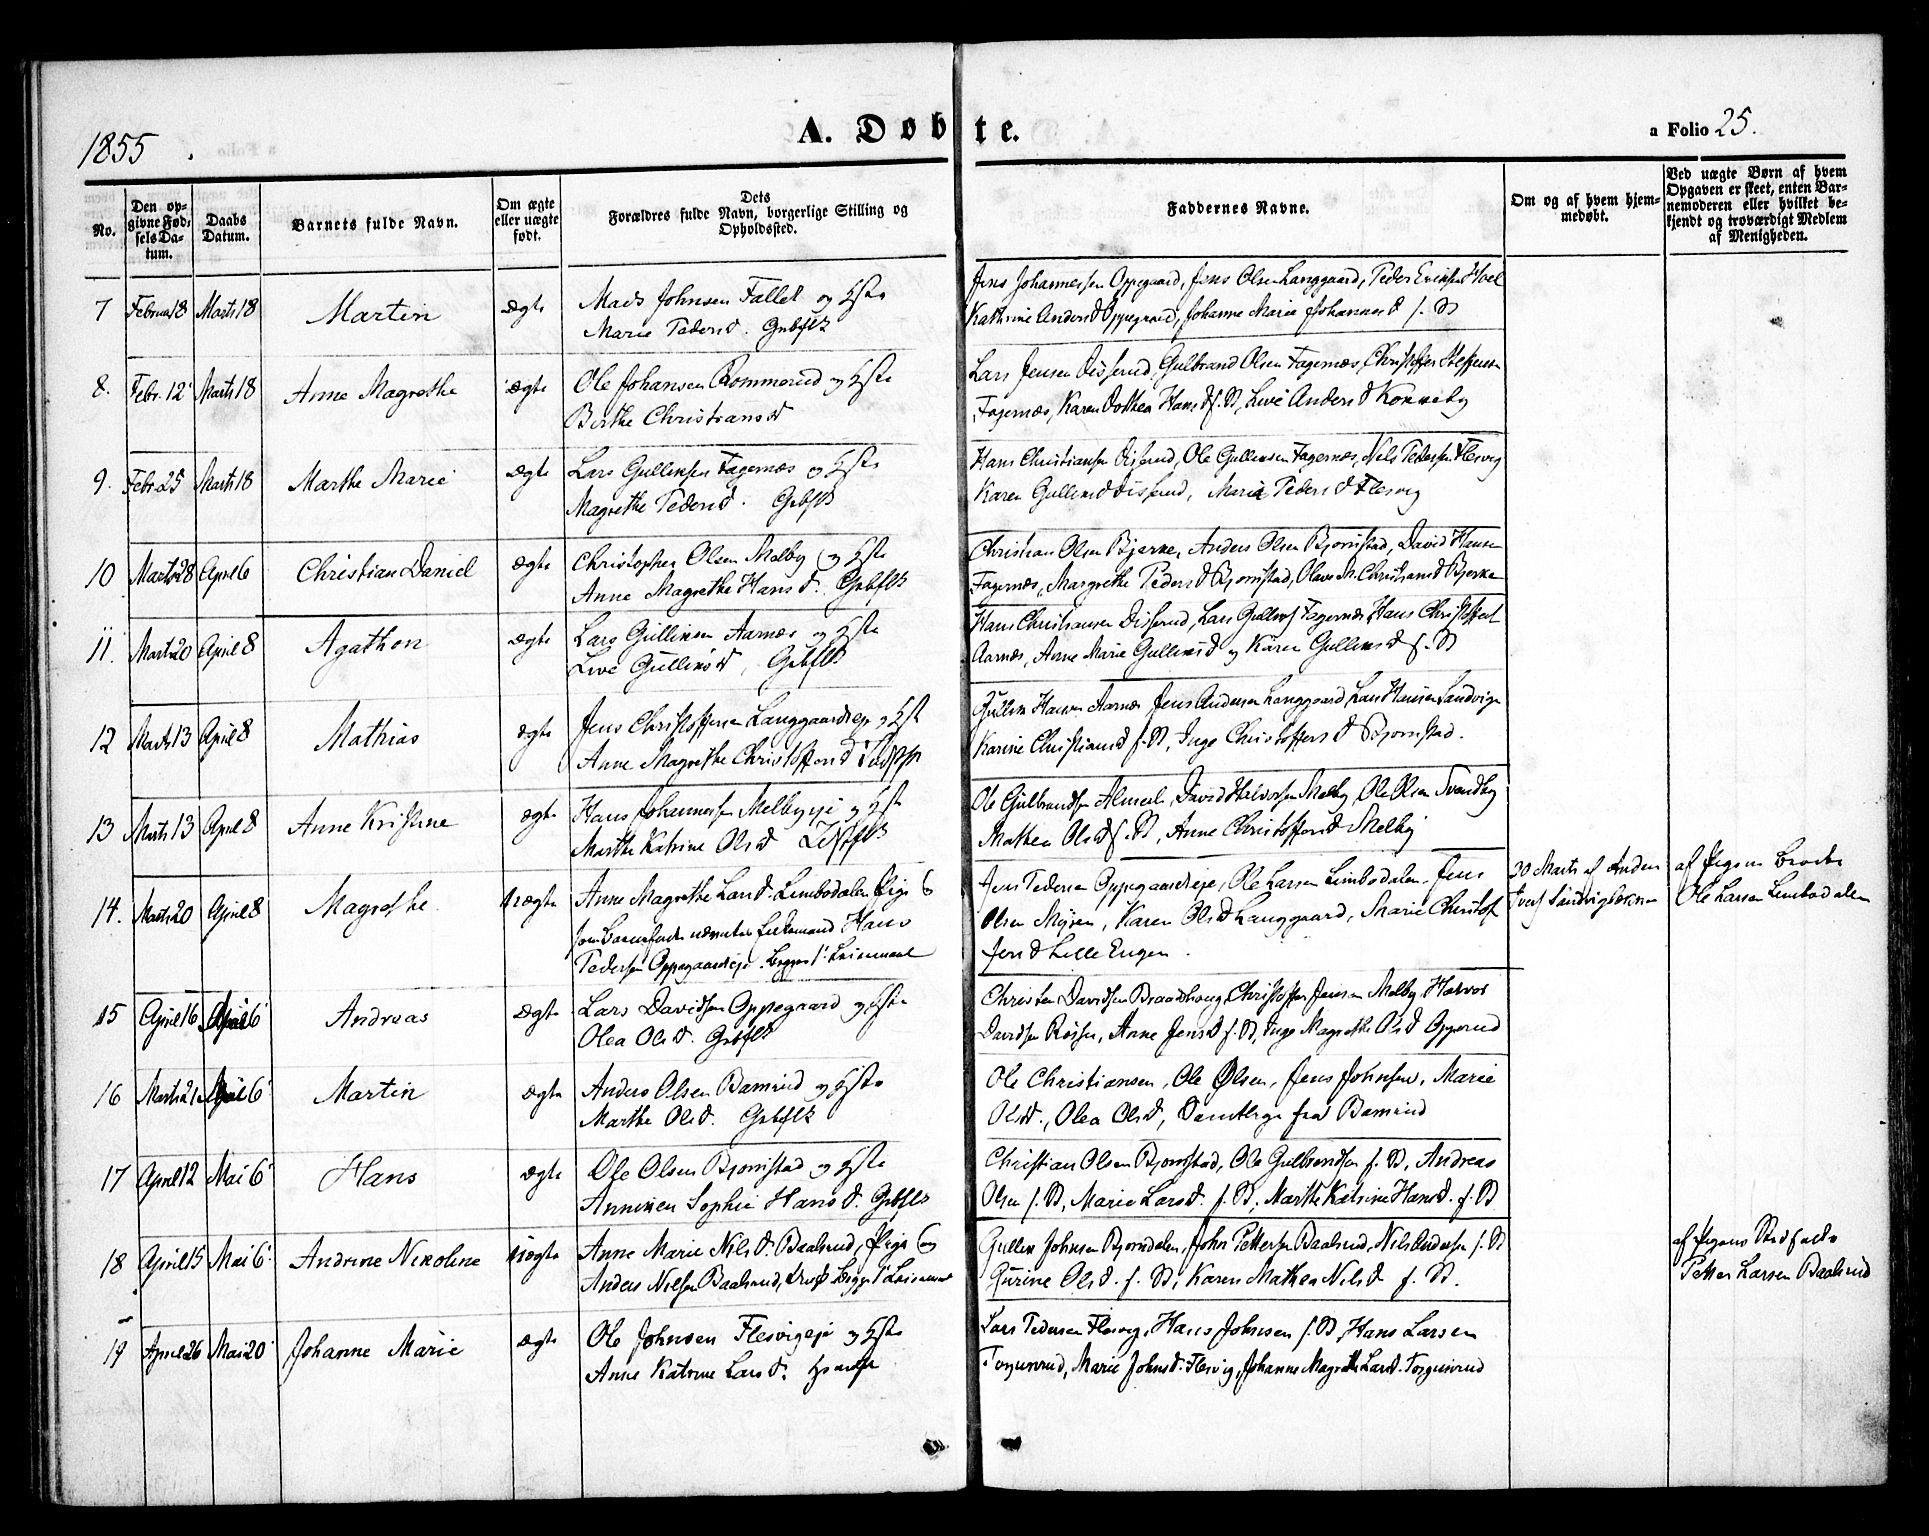 1855
A. Døbte.
a Folio 25.
No.
Den op-
givne Fød-
sels Da-
tum.
Daabs
Datum.
Barnets fulde Navn.
Om ægte
eller uægte
født.
Dets
Forældres fulde Navn, borgerlige Stilling og
Opholdssted.
Faddernes Navne.
Om og af hvem hjem-
medøbt.
Ved uægte Børn af hvem
Opgaven er skeet, enten Bar-
nemoderen eller hvilket be-
kjendt og troværdigt Medlem
af Menigheden.
7 Februar 18 Marts 18 Martin ægte Mads Johnsen Fallet og Hste
Marie Peders D. Grbflk
Jens Johannessen Oppegaard, Jens Olsen Langgaard, Peder Eriksen Hoel
Kathrine Anders D Oppegaard, Johanne Marie Johannes D f. St
8. Febr. 12 Marts 18 Anne Magrethe ægte Ole Johansen Rommerud og Hste
Birthe Christians D
Lars Jensen Disserud, Gulbrand Olsen Fagernæs, Christoffer Steffensen
Fagernæs, Karen Dorthea Hans D f. St, Live Anders D Konneby
9. Febr 25 Marts 18 Marthe Marie ægte Lars Gulliksen Fagernæs og Hste
Magrethe Peders D. Grbflk
Hans Christiansen Disserud, Ole Gulliksen Fagernæs, Nils Pedersen Flesvig
Karen Gulliks D Disserud, Maria Peders D Flesvig
10 Marts 28 April 6 Christian Daniel ægte Christopher Olsen Melby og Hste
Anne Magrethe Hans D. Grbflk
Christian Olsen Bjerke, Anders Olsen Bjørnstad, David Hansen
Fagernæs, Margrethe Peders D Bjørnstad, Olave M. Christians D Bjerke
11. Marts 20 April 8 Agathon ægte Lars Gulliksen Aarnæs og Hste
Live Gulliks D, Grbflk
Hans Christiansen Disserud, Lars Gulliks Fagernæs, Hans Christoffers
Aarnæs, Anne Marie Gulliks D og Karen Gulliks D f. St
12 Marts 13 April 8 Mathias ægte Jens Christoffersen Langgaardseje og Hste
Anne Magrethe Christoffers D
Gullik Hansen Aarnæs, Jens Andersen Langgaard, Lars Hansen Sandvigen
Karine Christians D f. St, Inge Christoffers D Bjørnstad.
13 Marts 13 April 8 Anne Kristine ægte Hans Johannessen Melbyeje og Hste
Marthe Katrine Ols D
Ole Gulbrandsen, David Halvorsen Melby, Ole Olsen Svendby
Mathea Ols D f. St, Anne Christoffers D Melby
14. Marts 20 April 8 Magrethe uægte Anne Magrethe Lars D. Limbodalen Pige og
som Barnefader nævntes Hans
Pedersen Oppegaardseje. Begges 1' Leiermaal
Jens Pedersen Oppegaardseje, Ole Larsen Limbodalen, Jens
Olsen Myren, Karen Ols D Langgaard, Marie Christof
fers D Lille Engen.
20 Marts af Anders
Ivers Sandvigbakken
af Pigens Broder
Ole Larsen Limbodalen
15 April 16 Mai 6 Andreas ægte Lars Davidsen Oppegaard og Hste
Olea Ols D. Grbflk
Christen Davidsen Braadhoug, Christoffer Jensen Melby, Halvor
Davidsen Røsser, Anne Jens D f. St, Inge Magrethe Ols D Opperud
16 Marts 21 Mai 6 Martin ægte Anders Olsen Bamrud og Hste
Marthe Ols D. Grbflk
Ole Christiansen, Ole Olsen, Jens Johnsen, Marie
Ols D., Olea Ols D, samtlige fra Bamrud
17 April 12 Mai 6 Hans ægte Ole Olsen Bjørnstad og Hste
Anniken Sophie Hans D. Grbflk
Christian Olsen Bjørnstad, Ole Gulbrandsen f. St, Andreas
Olsen f. St, Marie Lars D. f. St, Marthe Katrine Hans D. f. St
18 April 15 Mai 6 Andrine Nikoline uægte Anne Marie Nils D. Baalsrud, Pige og
Anders Nilsen Baalsrud, Begges 1' Leiermaal
Gullik Johnsen Bjørndalen, John Pettersen Baalsrud, Nils Andersen f. St
Gurine Ols D. f. St, Karen Mathea Nils D f. St.
af Pigens Stedfader
Petter Larsen Baalsrud
19 April 26 Mai 20 Johanne Marie ægte Ole Johnsen Flesvigeje og Hste
Anne Katrine Lars D.
Lars Pedersen Flesvig, Hans Johnsen f. St, Hans Larsen
Torgunrud, Marie Johns D. Flesvig, Johanne Magrethe Lars D. Torgunrud